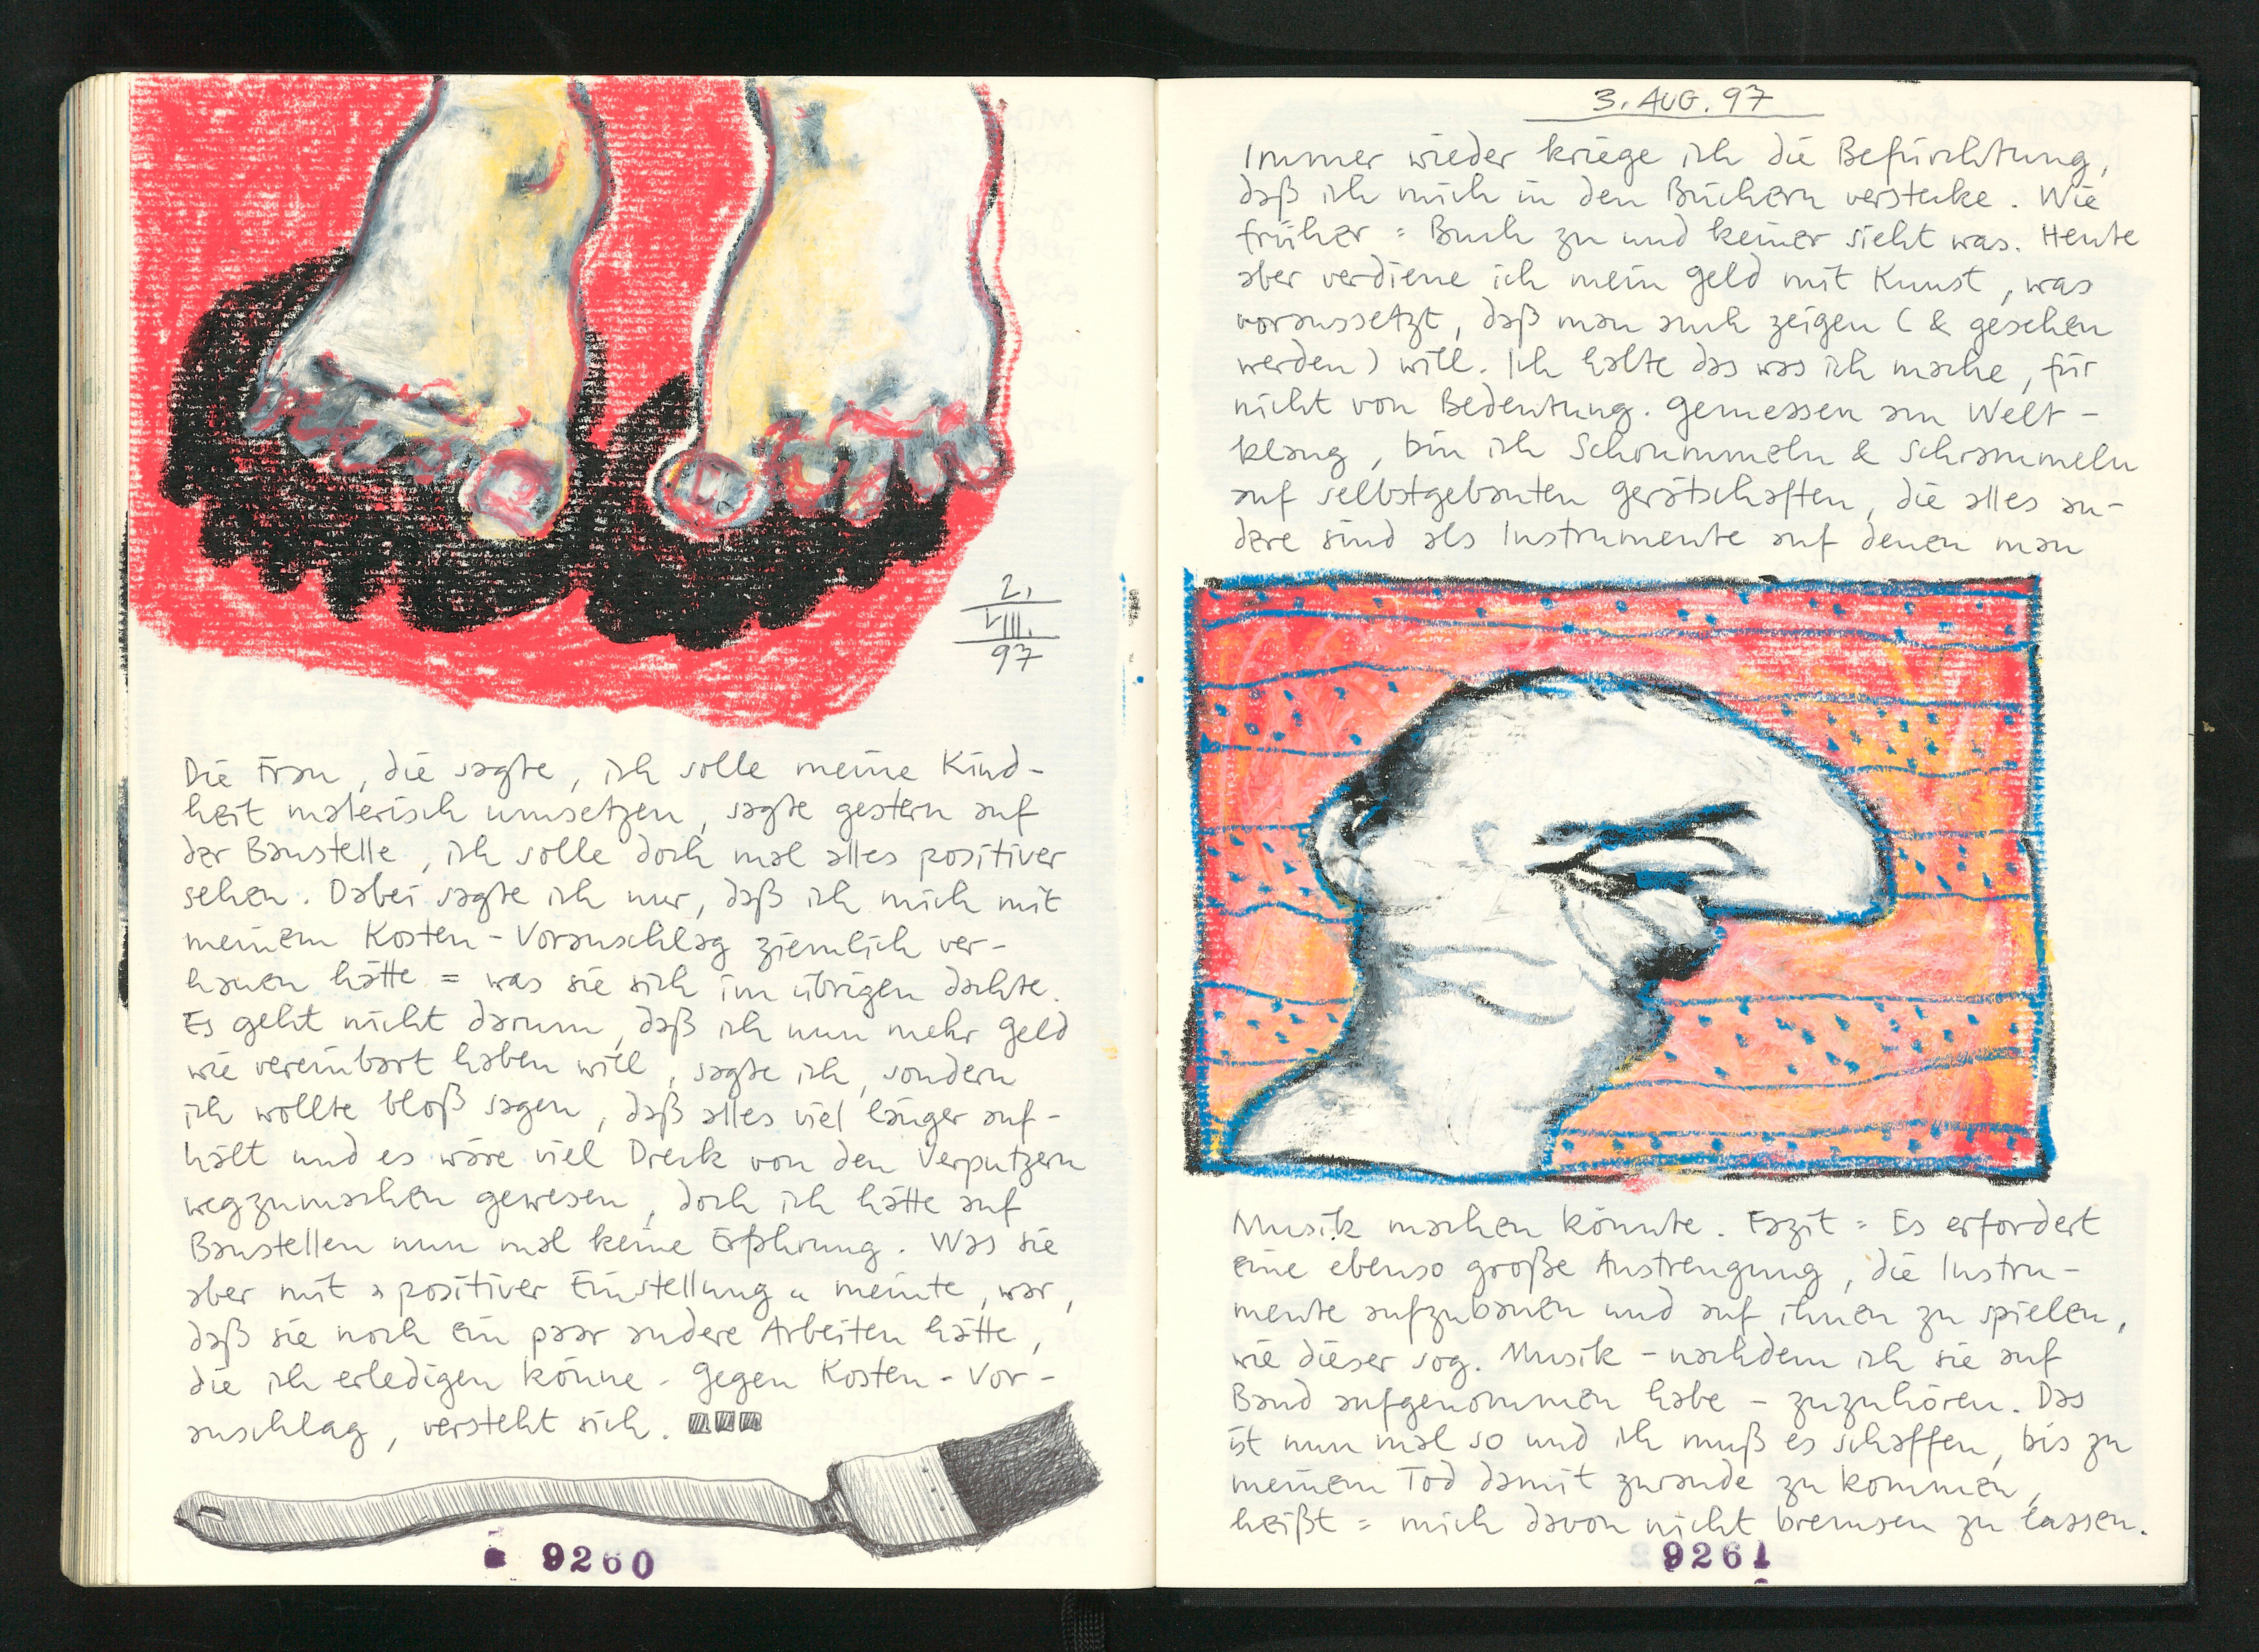 2.
VIII.
97
Die Frau, die sagte, ich solle meine Kind-
heit malerisch umsetzen, sagte gestern auf
der Baustelle, ich solle doch mal alles positiver
sehen. Dabei sagte ich nur, daß ich mich mit
meinem Kosten-Voranschlag ziemlich ver-
hauen hätte = was sie sich im übrigen dachte.
Es geht nicht darum, daß ich nun mehr Geld
wie vereinbart haben will, sagte ich, sondern
ich wollte bloß sagen, daß alles viel länger auf-
hält und es wäre viel Dreck von den Verputzern
wegzumachen gewesen, doch ich hätte auf
Baustellen nun mal keine Erfahrung. Was sie
aber mit »positiver Einstellung« meinte, war,
daß sie noch ein paar andere Arbeiten hätte,
die ich erledigen könne - gegen Kosten-Vor-
anschlag, versteht sich.
9260
3. AUG. 97
Immer wieder kriege ich die Befürchtung,
daß ich mich in den Büchern verstecke. Wie
früher = Buch zu und keiner sieht was. Heute
aber verdiene ich mein Geld mit Kunst, was
voraussetzt, daß man auch zeigen (& gesehen
werden) will. Ich halte das was ich mache, für
nicht von Bedeutung. Gemessen am Welt-
klang, bin ich Schrummeln & Schrammeln
auf selbstgebauten Gerätschaften, die alles an-
dere sind als Instrumente auf denen man
Musik machen könnte. Fazit = Es erfordert
eine ebenso große Anstrengung, die Instru-
mente aufzubauen und auf ihnen zu spielen,
wie dieser sog. Musik - nachdem ich sie auf
Band aufgenommen habe - zuzuhören. Das
ist nun mal so und ich muß es schaffen, bis zu
meinem Tod damit zurande zu kommen,
heißt = mich davon nicht bremsen zu lassen.
9261